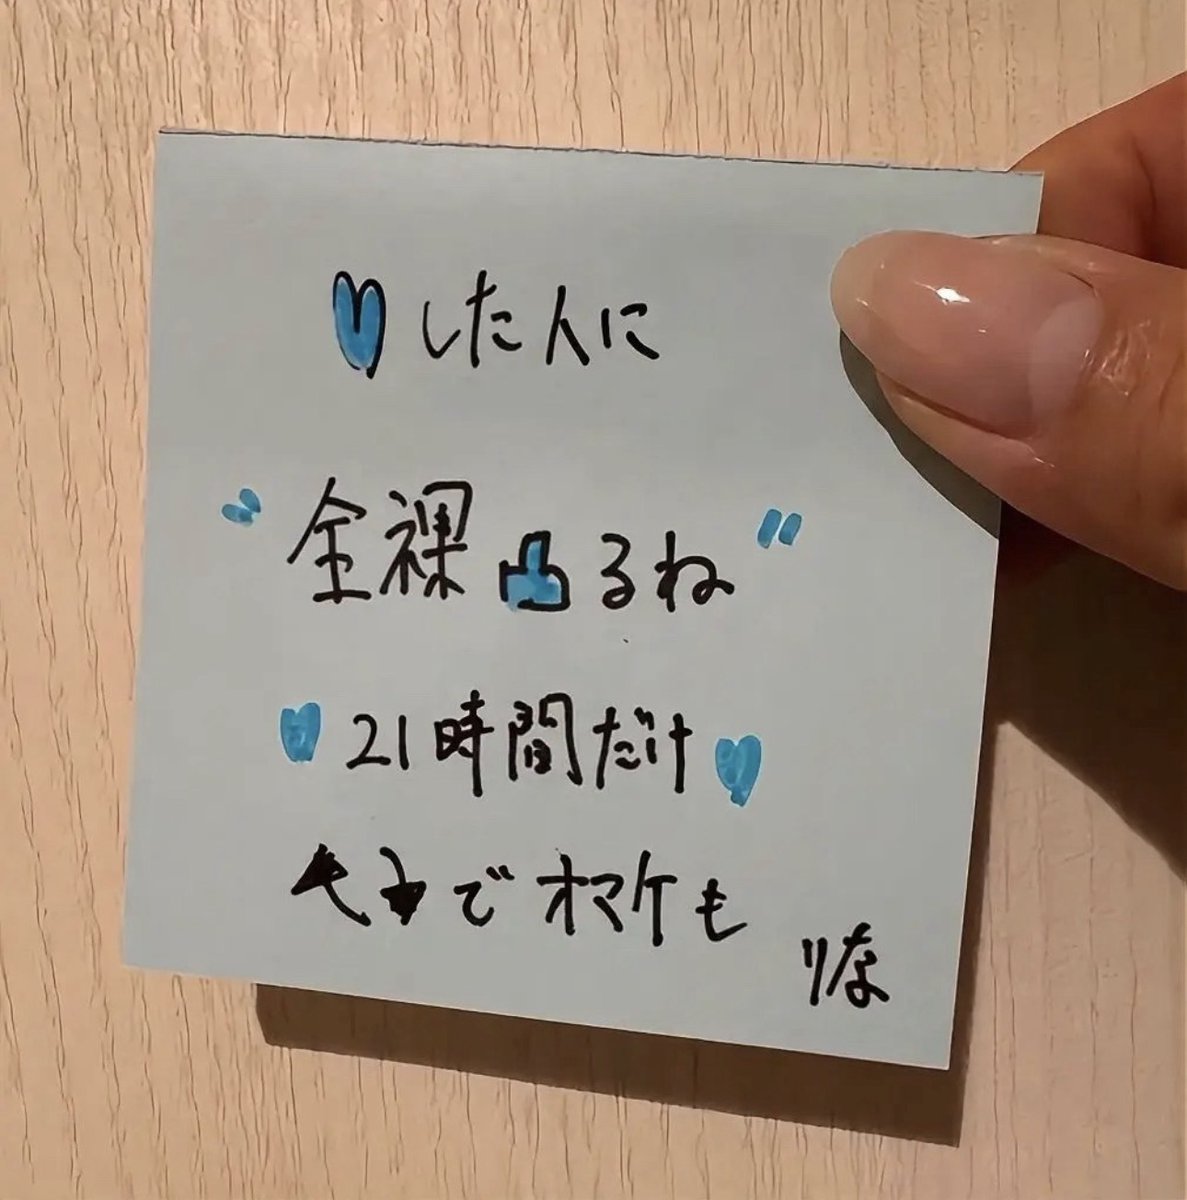 ♥した人に
"全裸凸るね"
♥21時間だけ♥
でオマケも
りな